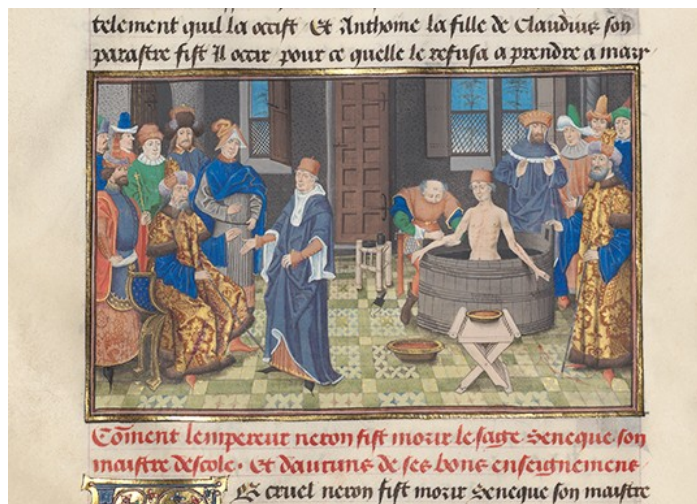 telement quil la occist Et Anthoine la fille de Claudius son
parastre fist Il occir pour ce quelle le refusa a prendre a mary
Coment lempereur neron fist morir le sage Seneque son
maistre descole. Et daucuns de ses bons enseignemens
Le cruel neron fist morir Seneque son maistre